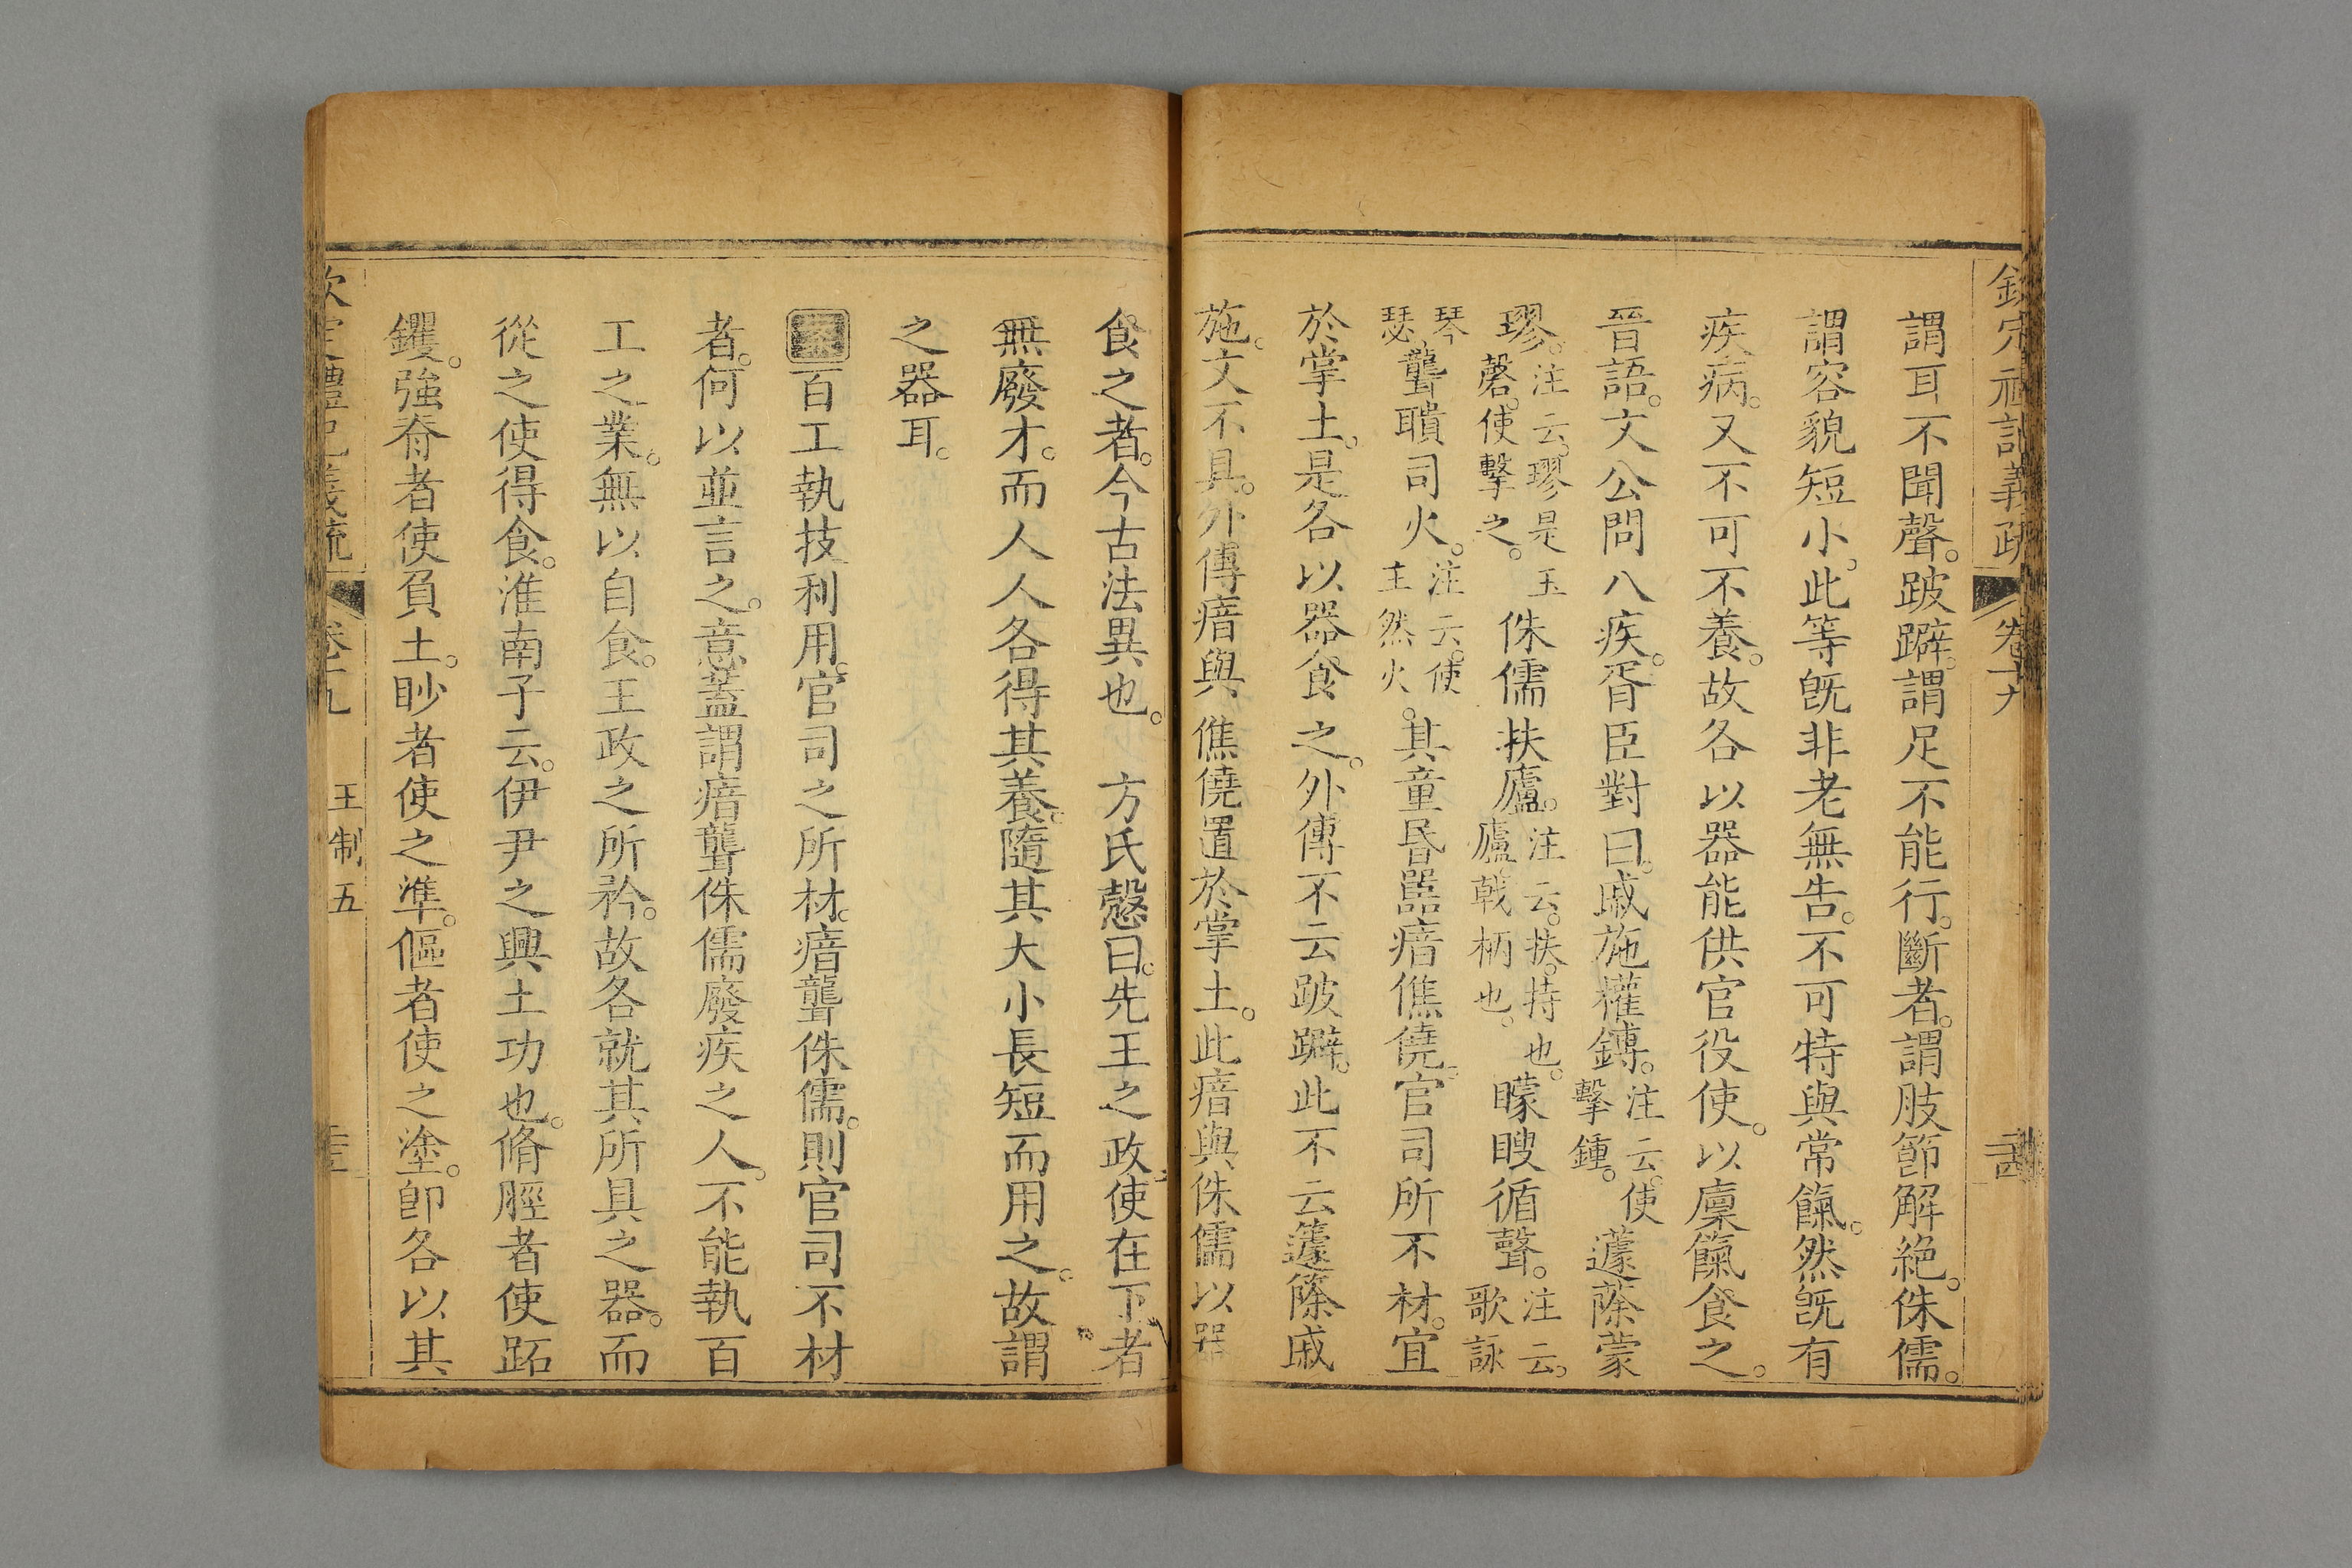 欽定禮記義疏 卷十九
謂耳不聞聲。跛躃。謂足不能行。斷者。謂肢節解絕。侏儒。
謂容貌短小。此等旣非老無告。不可特與常餼。然旣有
疾病。又不可不養。故各以器能供官役使。以廩餼食之。
晉語。文公問八疾。胥臣對曰。戚施權鎛。注云。使擊鍾。蘧蒢蒙
璆。注云。璆是玉磬。使擊之。侏儒扶廬。注云。扶。持也。廬。戟柄也。矇瞍循聲。注云。歌詠
琴瑟。聾聵司火。注云。使主然火。其童昏嚚瘖僬僥。官司所不材。宜
於掌土。是各以器食之。外傳不云跛躃。此不云籧篨戚
施。文不具。外傳瘖與僬僥置於掌土。此瘖與侏儒以器
食之者。今古法異也。 方氏慤曰。先王之政。使在下者
無廢才。而人人各得其養。隨其大小長短而用之。故謂
之器耳。
百工執技利用。官司之所材。瘖聾侏儒。則官司不材
者。何以並言之。意蓋謂瘖聾侏儒廢疾之人。不能執百
工之業。無以自食。王政之所矜。故各就其所具之器。而
從之使得食。淮南子云。伊尹之興土功也。脩脛者使跖
钁。強脊者使負土。眇者使之準。傴者使之塗。卽各以其
欽定禮記義疏 卷十九 王制五